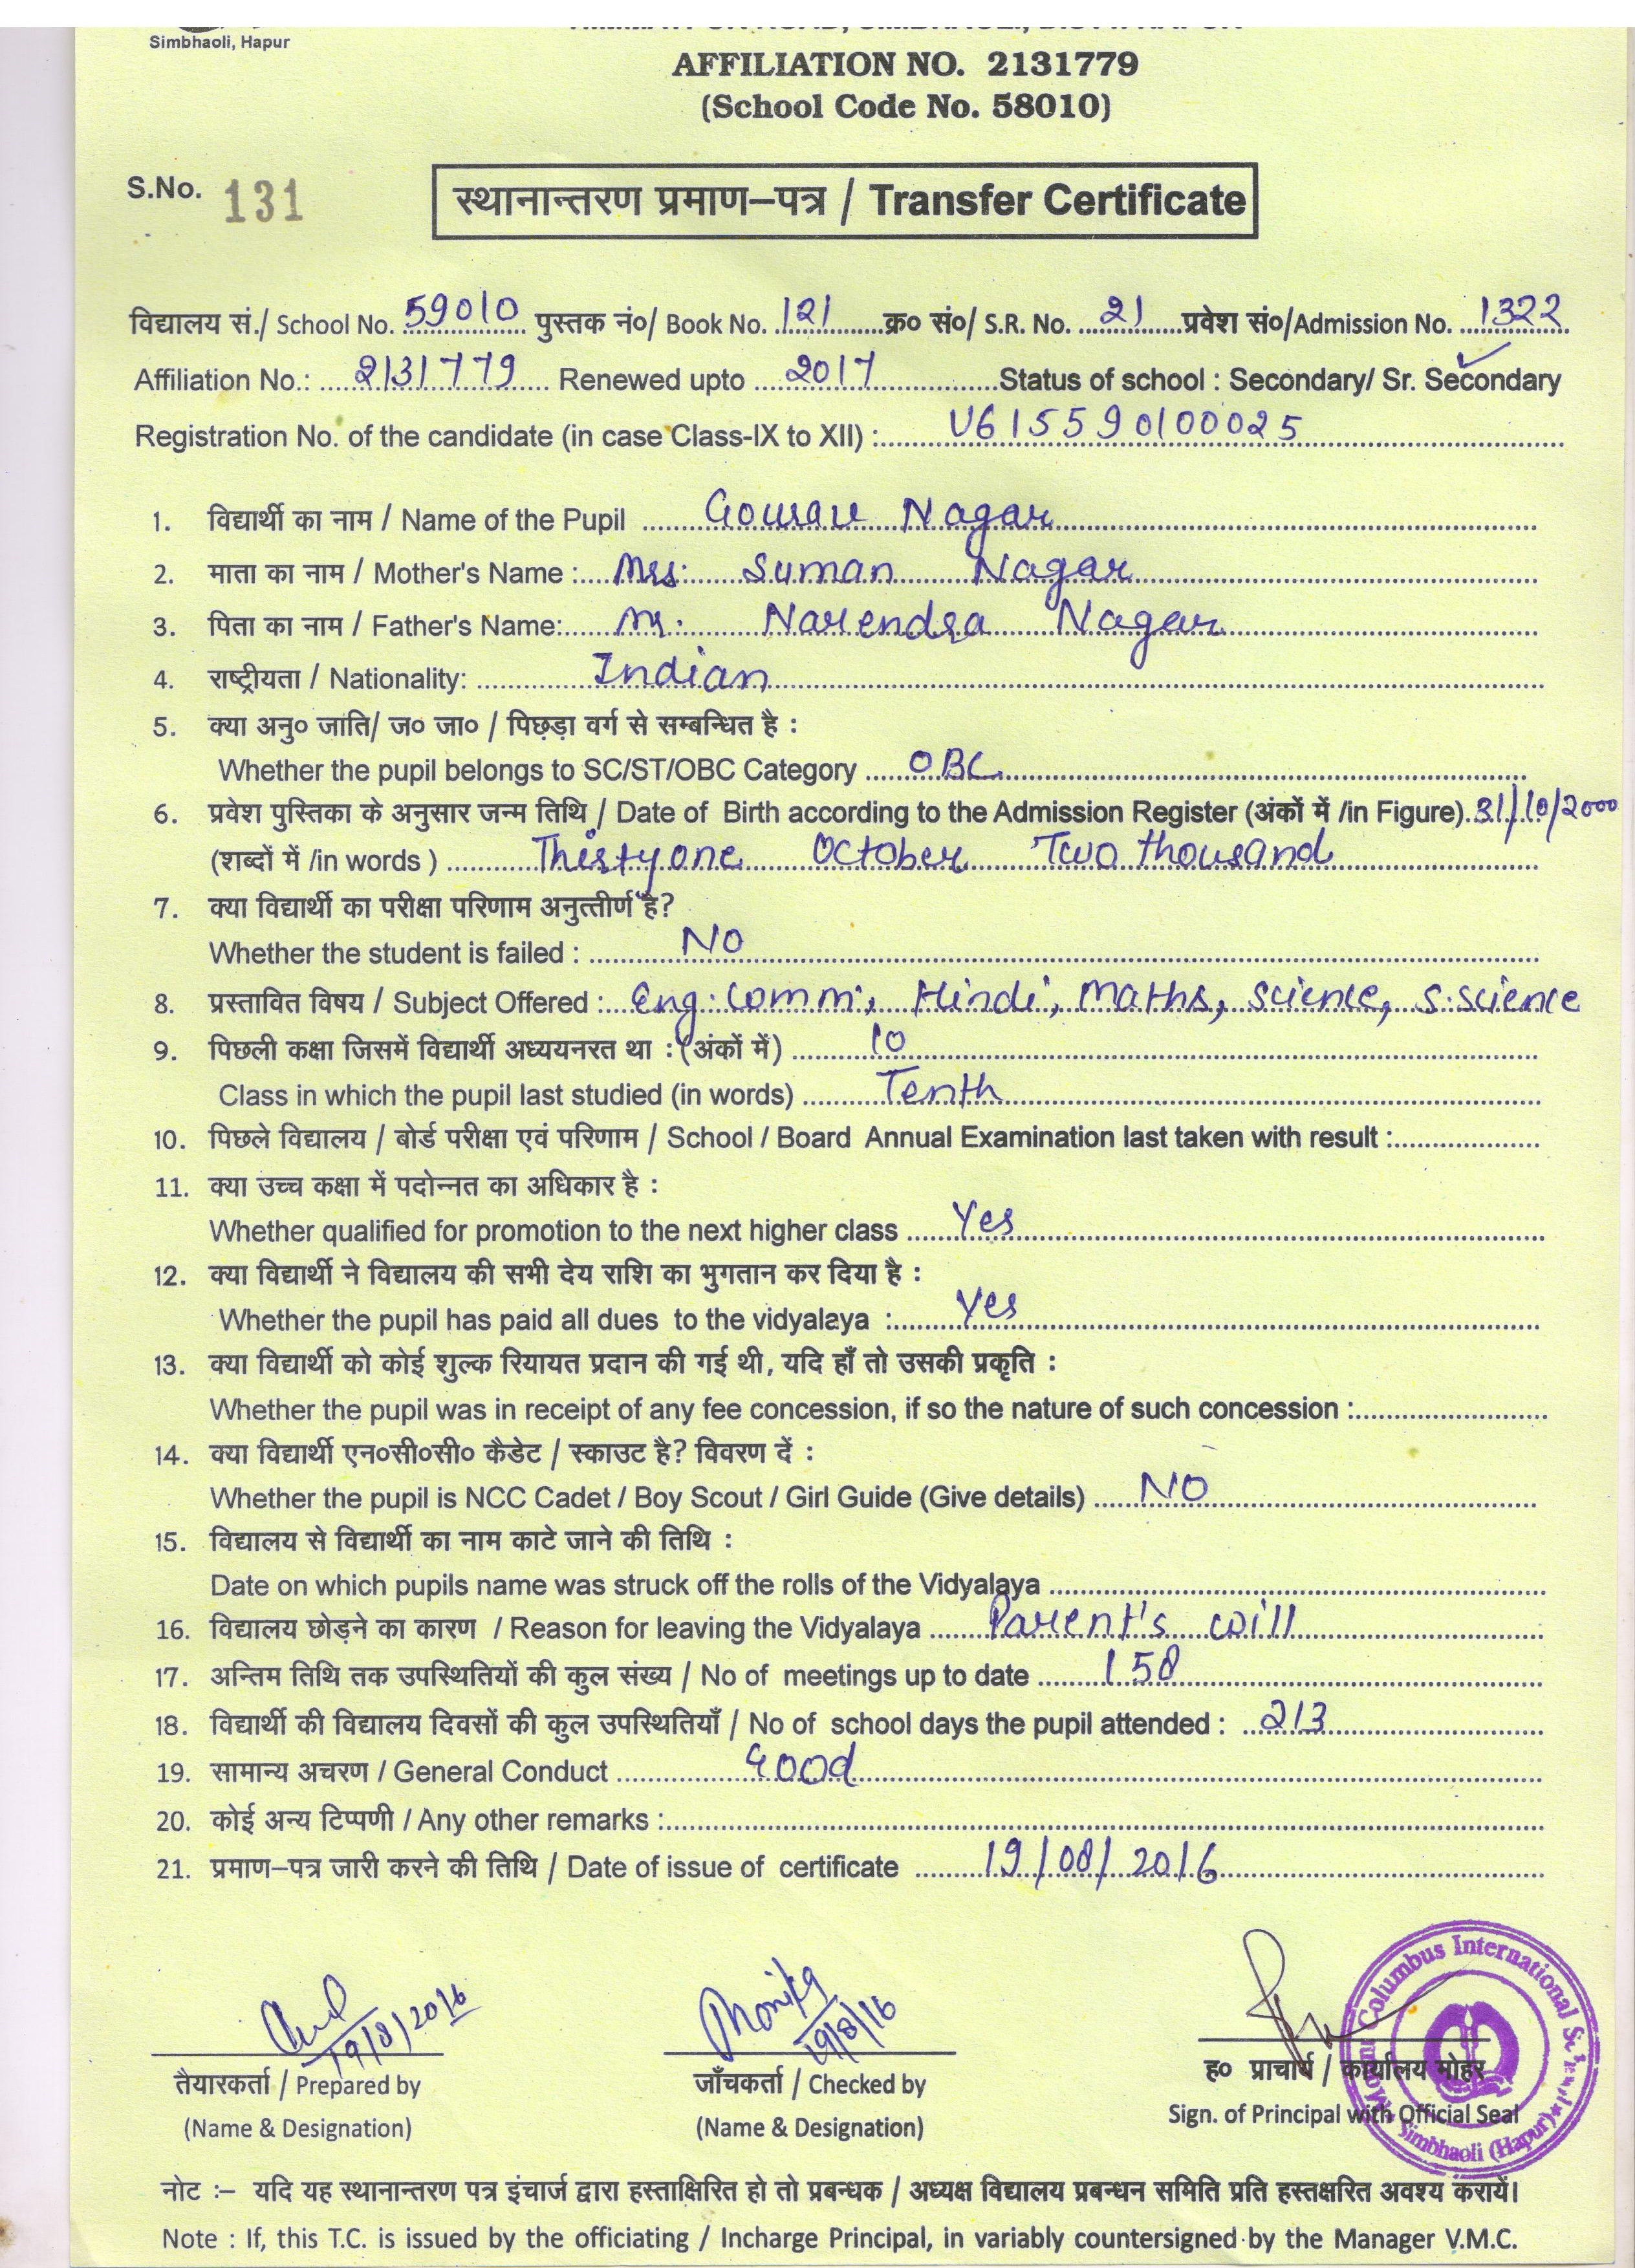 Simbhaoli, Hapur
AFFILIATION NO. 2131779
(School Code No. 58010)
S.No. 131
स्थानान्तरण प्रमाण–पत्र / Transfer Certificate
विद्यालय सं./ School No. 59010 पुस्तक नं०/ Book No. 121 क्र० सं०/ S.R. No. 21 प्रवेश सं०/Admission No. 1322
Affiliation No.: 2131779 Renewed upto 2017 Status of school : Secondary/ Sr. Secondary
Registration No. of the candidate (in case Class-IX to XII) : U615590100025
1. विद्यार्थी का नाम / Name of the Pupil Gourav Nagar
2. माता का नाम / Mother's Name : Mrs. Suman Nagar
3. पिता का नाम / Father's Name: Mr. Narendra Nagar
4. राष्ट्रीयता / Nationality: Indian
5. क्या अनु० जाति/ ज० जा० / पिछड़ा वर्ग से सम्बन्धित है :
Whether the pupil belongs to SC/ST/OBC Category OBC
6. प्रवेश पुस्तिका के अनुसार जन्म तिथि / Date of Birth according to the Admission Register (अंकों में /in Figure) 31/10/2000
(शब्दों में /in words ) Thirty one October Two thousand
7. क्या विद्यार्थी का परीक्षा परिणाम अनुत्तीर्ण है?
Whether the student is failed : NO
8. प्रस्तावित विषय / Subject Offered : Eng. Comm., Hindi, Maths, Science, S.Science
9. पिछली कक्षा जिसमें विद्यार्थी अध्ययनरत था : (अंकों में) 10
Class in which the pupil last studied (in words) Tenth
10. पिछले विद्यालय / बोर्ड परीक्षा एवं परिणाम / School / Board Annual Examination last taken with result :
11. क्या उच्च कक्षा में पदोन्नत का अधिकार है :
Whether qualified for promotion to the next higher class Yes
12. क्या विद्यार्थी ने विद्यालय की सभी देय राशि का भुगतान कर दिया है :
Whether the pupil has paid all dues to the vidyalaya : Yes
13. क्या विद्यार्थी को कोई शुल्क रियायत प्रदान की गई थी, यदि हाँ तो उसकी प्रकृति :
Whether the pupil was in receipt of any fee concession, if so the nature of such concession :
14. क्या विद्यार्थी एन०सी०सी० कैडेट / स्काउट है? विवरण दें :
Whether the pupil is NCC Cadet / Boy Scout / Girl Guide (Give details) NO
15. विद्यालय से विद्यार्थी का नाम काटे जाने की तिथि :
Date on which pupils name was struck off the rolls of the Vidyalaya
16. विद्यालय छोड़ने का कारण / Reason for leaving the Vidyalaya Parent's will
17. अन्तिम तिथि तक उपस्थितियों की कुल संख्य / No of meetings up to date 158
18. विद्यार्थी की विद्यालय दिवसों की कुल उपस्थितियाँ / No of school days the pupil attended : 213
19. सामान्य अचरण / General Conduct Good
20. कोई अन्य टिप्पणी / Any other remarks :
21. प्रमाण–पत्र जारी करने की तिथि / Date of issue of certificate 19/08/2016
19/8/2016
Monika 19/8/16
Columbus International Simbhaoli (Hapur)
तैयारकर्ता / Prepared by जाँचकर्ता / Checked by ह० प्राचार्य / कार्यालय मोहर
(Name & Designation) (Name & Designation) Sign. of Principal with Official Seal
नोट :– यदि यह स्थानान्तरण पत्र इंचार्ज द्वारा हस्ताक्षिरित हो तो प्रबन्धक / अध्यक्ष विद्यालय प्रबन्धन समिति प्रति हस्तक्षरित अवश्य करायें।
Note : If, this T.C. is issued by the officiating / Incharge Principal, in variably countersigned by the Manager V.M.C.